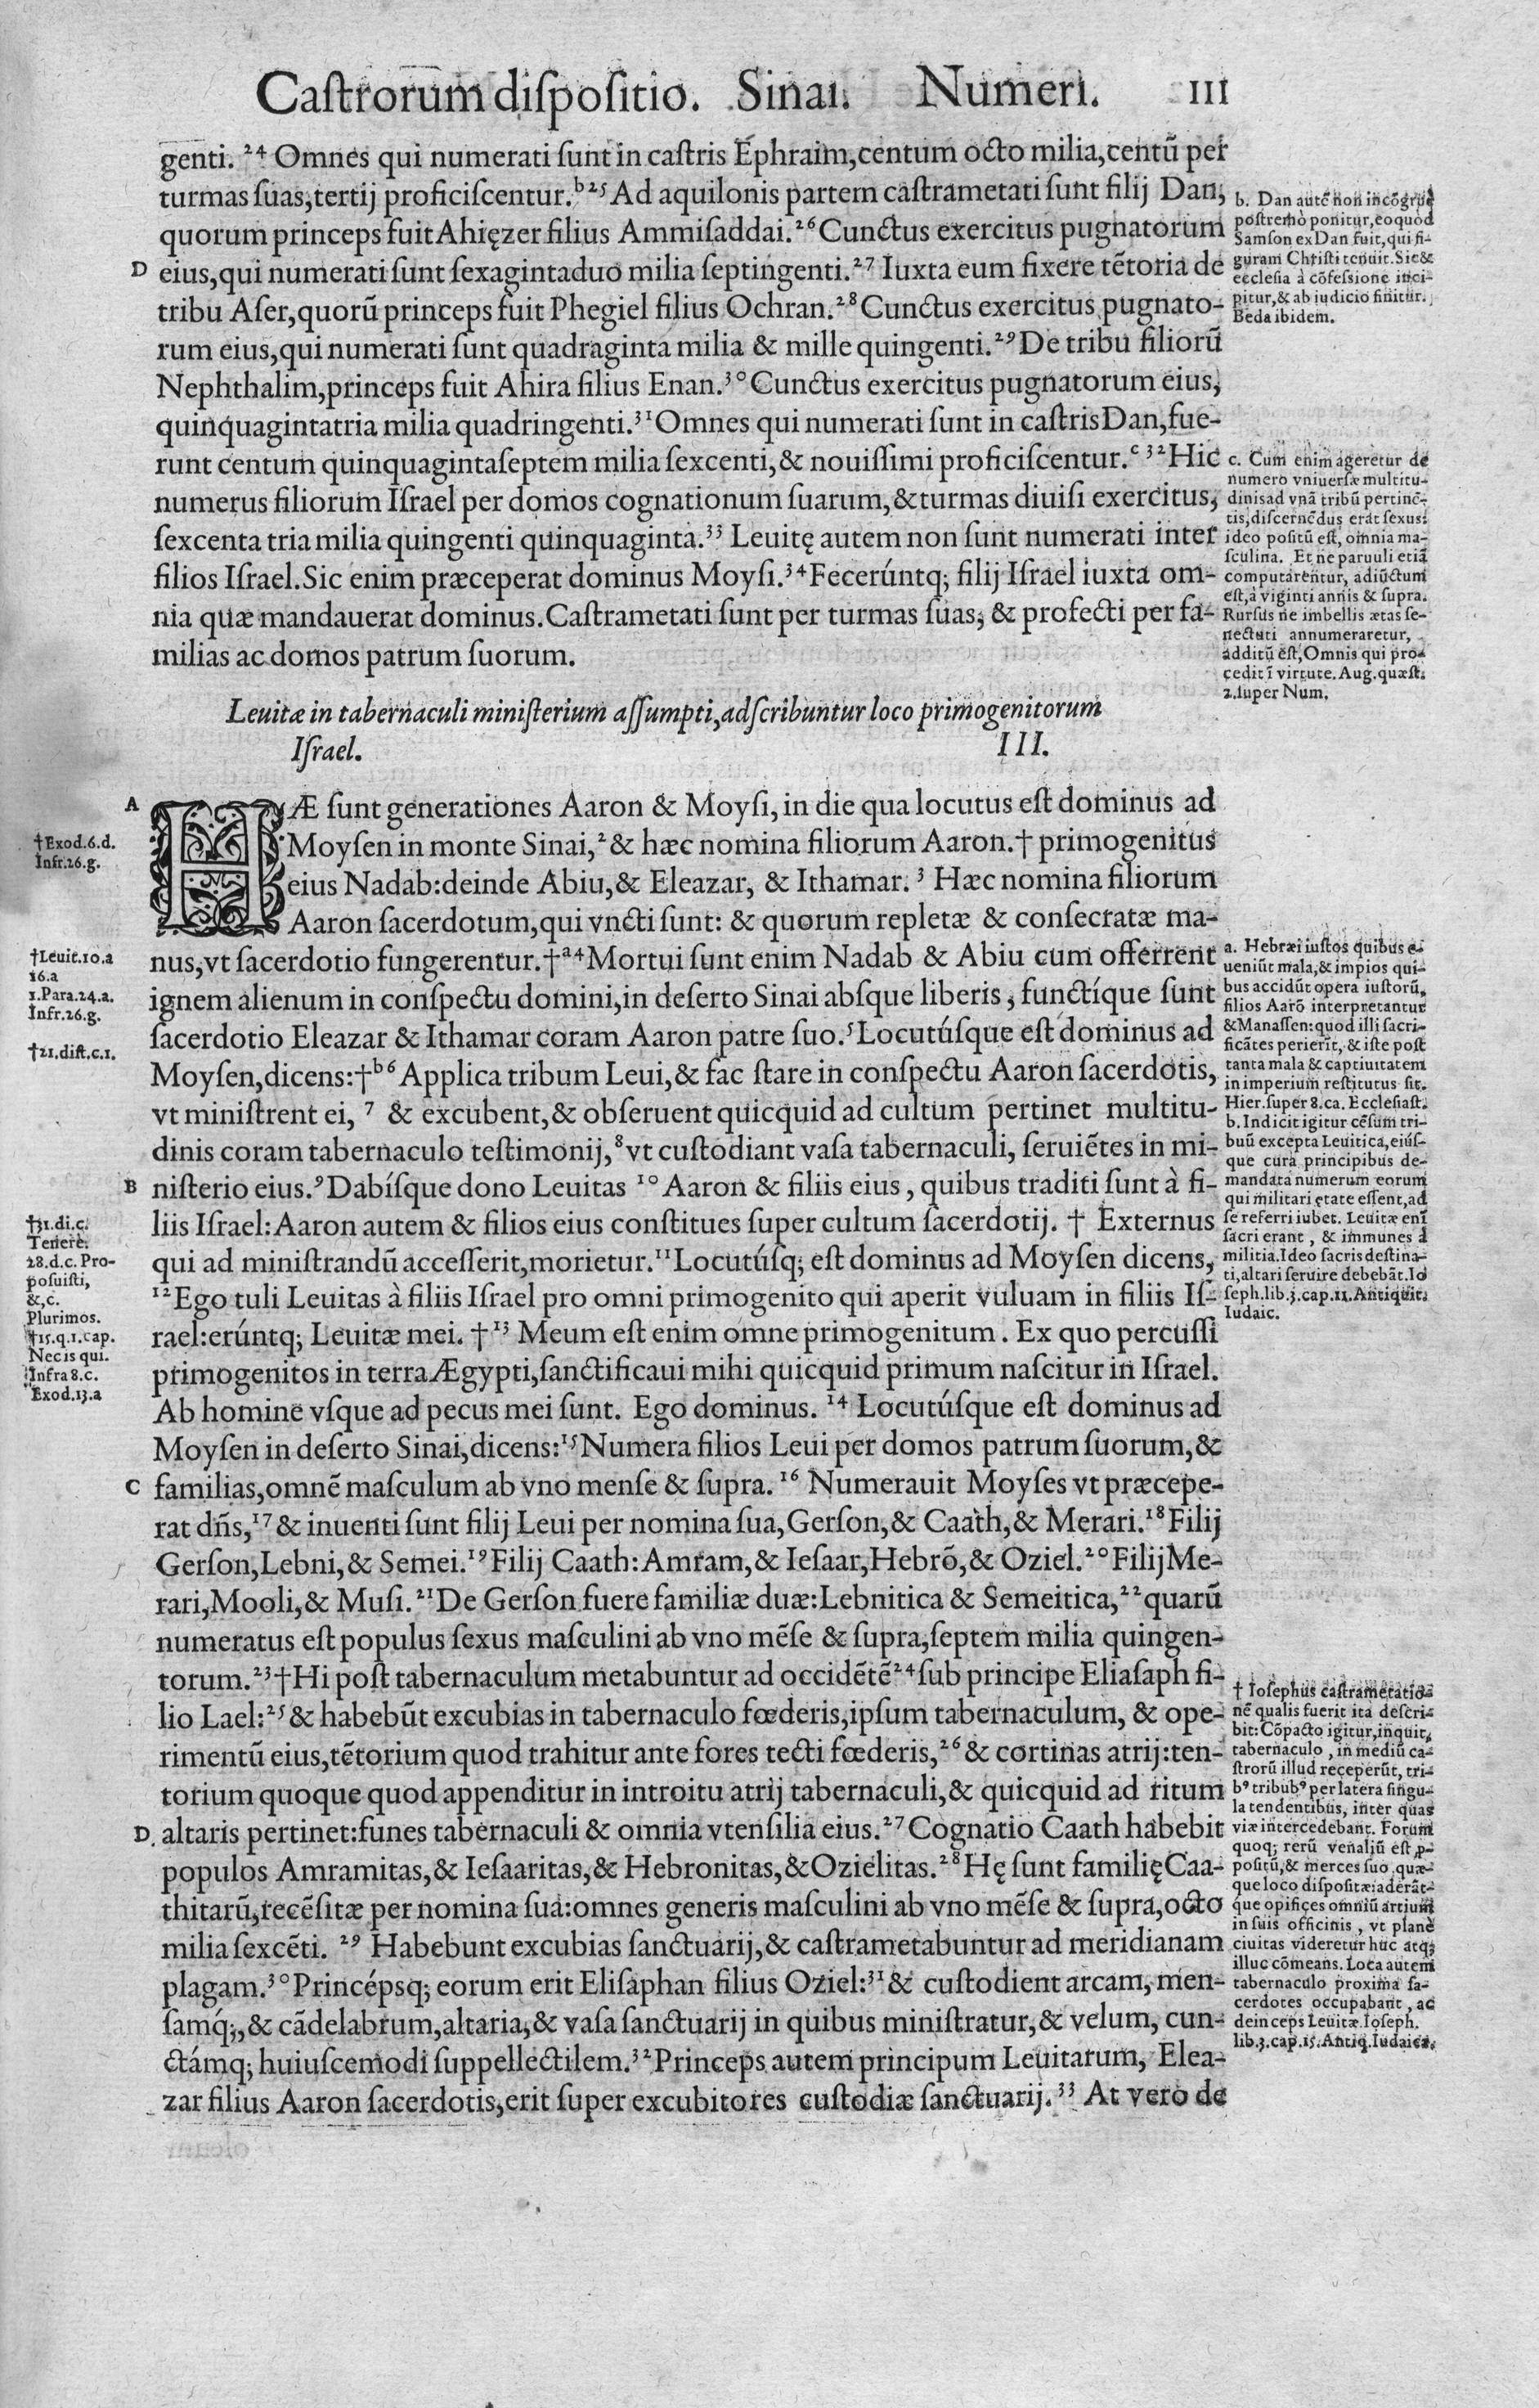 Castrorum dispositio. Sinai. Numeri. 111
genti.²⁴ Omnes qui numerati sunt in castris Ephraim,centum octo milia,centũ per
turmas suas,tertij proficiscentur.ᵇ²⁵ Ad aquilonis partem castrametati sunt filij Dan,
quorum princeps fuit Ahięzer filius Ammisaddai.²⁶Cunctus exercitus pugnatorum
D eius,qui numerati sunt sexagintaduo milia septingenti.²⁷ Iuxta eum fixere tẽtoria de
tribu Aser,quorũ princeps fuit Phegiel filius Ochran.²⁸Cunctus exercitus pugnato-
rum eius,qui numerati sunt quadraginta milia & mille quingenti.²⁹De tribu filiorũ
Nephthalim,princeps fuit Ahira filius Enan.³⁰Cunctus exercitus pugnatorum eius,
quinquagintatria milia quadringenti.³¹Omnes qui numerati sunt in castris Dan,fue-
runt centum quinquagintaseptem milia sexcenti,& nouissimi proficiscentur.ᶜ³²Hic
numerus filiorum Israel per domos cognationum suarum,&turmas diuisi exercitus,
sexcenta tria milia quingenti quinquaginta.³³ Leuitę autem non sunt numerati inter
filios Israel.Sic enim præceperat dominus Moysi.³⁴Fecerúntq; filij Israel iuxta om-
nia quæ mandauerat dominus.Castrametati sunt per turmas suas, & profecti per fa-
milias ac domos patrum suorum.
b. Dan autẽ non incõgruè
postremò ponitur,eoquòd
Samson ex Dan fuit,qui fi-
guram Christi tenuit.Sic&
ecclesia à cõfessione inci-
pitur,& ab iudicio finitur.
Beda ibidem.
c. Cum enim ageretur de
numero vniuersæ multitu-
dinis ad vnã tribũ pertinẽ-
tis,discernẽdus erat sexus:
ideo positũ est, omnia ma-
sculina. Et ne paruuli etiã
computarentur, adiũctum
est,à viginti annis & supra.
Rursus ne imbellis ætas se-
nectuti annumeraretur,
additũ est,Omnis qui pro-
cedit ĩ virtute.Aug.quæst.
2.super Num.
Leuitæ in tabernaculi ministerium assumpti,adscribuntur loco primogenitorum
Israel. III.
A HÆ sunt generationes Aaron & Moysi,in die qua locutus est dominus ad
Moysen in monte Sinai,²& hæc nomina filiorum Aaron.† primogenitus
eius Nadab:deinde Abiu,& Eleazar, & Ithamar.³ Hæc nomina filiorum
Aaron sacerdotum,qui vncti sunt: & quorum repletæ & consecratæ ma-
nus,vt sacerdotio fungerentur.†ᵃ⁴Mortui sunt enim Nadab & Abiu cum offerrent
ignem alienum in conspectu domini,in deserto Sinai absque liberis, functíque sunt
sacerdotio Eleazar & Ithamar coram Aaron patre suo.⁵Locutúsque est dominus ad
Moysen,dicens:†ᵇ⁶Applica tribum Leui,& fac stare in conspectu Aaron sacerdotis,
vt ministrent ei, ⁷ & excubent,& obseruent quicquid ad cultum pertinet multitu-
dinis coram tabernaculo testimonij,⁸vt custodiant vasa tabernaculi, seruiẽtes in mi-
B nisterio eius.⁹Dabísque dono Leuitas ¹⁰Aaron & filiis eius, quibus traditi sunt à fi-
liis Israel:Aaron autem & filios eius constitues super cultum sacerdotij. † Externus
qui ad ministrandũ accesserit,morietur.¹¹Locutúsq; est dominus ad Moysen dicens,
¹²Ego tuli Leuitas à filiis Israel pro omni primogenito qui aperit vuluam in filiis Is-
rael:erúntq; Leuitæ mei. †¹³ Meum est enim omne primogenitum. Ex quo percussi
primogenitos in terra Ægypti,sanctificaui mihi quicquid primum nascitur in Israel.
Ab homine vsque ad pecus mei sunt. Ego dominus. ¹⁴ Locutúsque est dominus ad
Moysen in deserto Sinai,dicens:¹⁵Numera filios Leui per domos patrum suorum,&
C familias,omnẽ masculum ab vno mense & supra.¹⁶ Numerauit Moyses vt præcepe-
rat dñs,¹⁷& inuenti sunt filij Leui per nomina sua,Gerson,& Caath,& Merari.¹⁸Filij
Gerson,Lebni,& Semei.¹⁹Filij Caath:Amram,& Iesaar,Hebrõ,& Oziel.²⁰Filij Me-
rari,Mooli,& Musi.²¹De Gerson fuere familiæ duæ:Lebnitica & Semeitica,²²quarũ
numeratus est populus sexus masculini ab vno mẽse & supra,septem milia quingen-
torum.²³†Hi post tabernaculum metabuntur ad occidẽtẽ²⁴sub principe Eliasaph fi-
lio Lael:²⁵& habebũt excubias in tabernaculo fœderis,ipsum tabernaculum, & ope-
rimentũ eius,tẽtorium quod trahitur ante fores tecti fœderis,²⁶& cortinas atrij:ten-
torium quoque quod appenditur in introitu atrij tabernaculi,& quicquid ad ritum
D. altaris pertinet:funes tabernaculi & omnia vtensilia eius.²⁷Cognatio Caath habebit
populos Amramitas,& Iesaaritas,& Hebronitas,&Ozielitas.²⁸Hę sunt familię Caa-
thitarũ,recẽsitæ per nomina sua:omnes generis masculini ab vno mẽse & supra,octo
milia sexcẽti. ²⁹ Habebunt excubias sanctuarij,& castrametabuntur ad meridianam
plagam.³⁰Princépsq; eorum erit Elisaphan filius Oziel:³¹& custodient arcam, men-
samq́;,& cãdelabrum,altaria,& vasa sanctuarij in quibus ministratur,& velum, cun-
ctámq; huiuscemodi suppellectilem.³²Princeps autem principum Leuitarum, Elea-
zar filius Aaron sacerdotis,erit super excubitores custodiæ sanctuarij.³³ At vero de
†Exod.6.d.
Infr.26.g.
†Leuit.10.a
16.a
1.Para.24.a.
Infr.26.g.
†21.dist.c.1.
†31.di.c.
Tenere.
28.d.c. Pro-
posuisti,
&,c.
Plurimos.
†15.q.1.cap.
Nec is qui.
Infra 8.c.
Exod.13.a
a. Hebræi iustos quibus e-
ueniũt mala,& impios qui-
bus accidũt opera iustorũ,
filios Aarõ interpretantur
&Manassen:quod illi sacri-
ficãtes perierĩt,& iste post
tanta mala & captiuitatem
in imperium restitutus sit.
Hier.super 8.ca. Ecclesiast.
b. Indicit igitur cẽsum tri-
buũ excepta Leuitica,eiús-
que cura principibus de-
mandata numerum eorum
qui militari ętate essent,ad
se referri iubet. Leuitæ enĩ
sacri erant, & immunes à
militia.Ideo sacris destina-
ti,altari seruire debebãt.Io
seph.lib.3.cap.11.Antiquit.
Iudaic.
† Iosephus castrametatio-
nẽ qualis fuerit ita descri-
bit:Cõpacto igitur,inquit,
tabernaculo, in mediũ ca-
strorũ illud receperũt, tri-
bꝰ tribubꝰ per latera singu-
la tendentibus, inter quas
viæ intercedebant. Forum
quoq; rerũ venaliũ est ꝓ-
positũ,& merces suo quæ-
que loco dispositæ:aderãt-
que opifices omniũ artium
in suis officinis, vt planè
ciuitas videretur huc atq;
illuc cõmeans. Loca autem
tabernaculo proxima sa-
cerdotes occupabant, ac
deinceps Leuitæ.Ioseph.
lib.3.cap.15.Antiq.Iudaica.